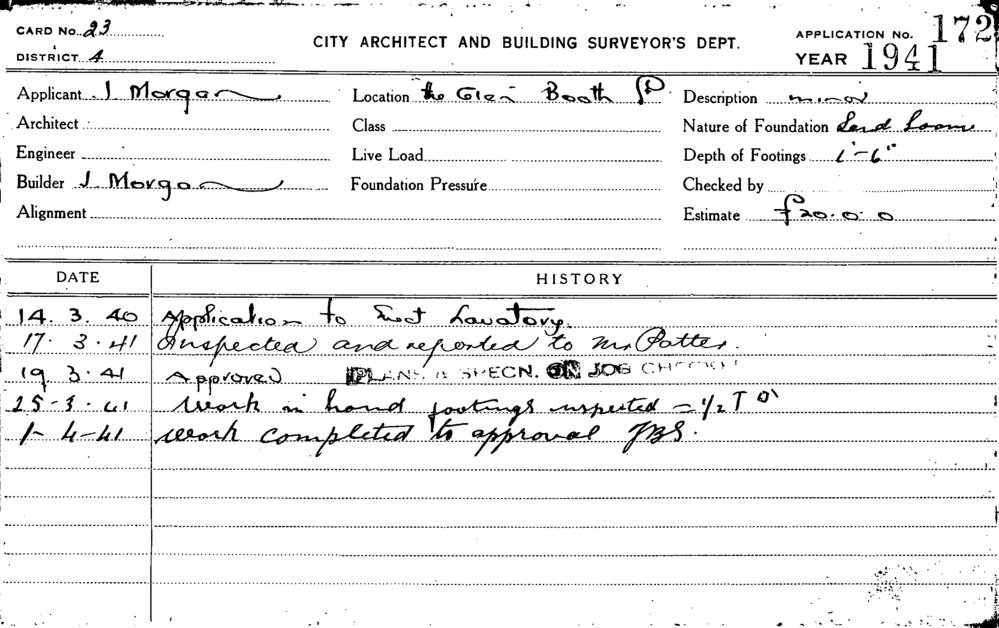 CARD No. 23
DISTRICT 4
CITY ARCHITECT AND BUILDING SURVEYOR'S DEPT.
APPLICATION No. 172
YEAR 1941
Applicant J Morgan
Location "The Glen" Booth St
Description minor
Architect
Class
Nature of Foundation Sand Loam
Engineer
Live Load
Depth of Footings 1'-6"
Builder J Morgan
Foundation Pressure
Checked by
Alignment
Estimate £20.0.0
DATE HISTORY
14. 3. 40 Application to Erect Lavatory.
17. 3. 41 Inspected and reported to Mr Potter.
19 3. 41 Approved PLANS & SPECN. ON JOB CHECKED
25-3-41 Work in hand footings inspected
1-4-41 work completed to approval